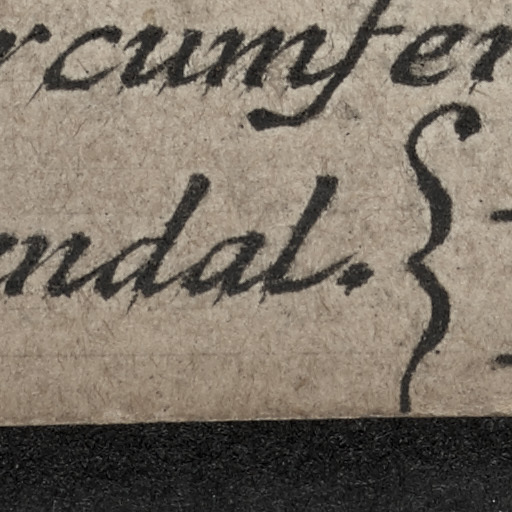 rcumfer
ndal. {